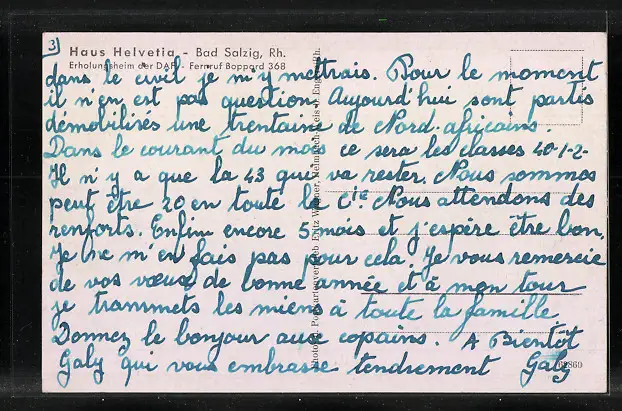 3)
Haus Helvetia - Bad Salzig, Rh.
Erholungsheim der DAF - Fernruf Boppard 368
dans le civil je m'y mettrais. Pour le moment
il n'en est pas question. Aujourd'hui sont partis
démobilisés une trentaine de Nord-africains.
Dans le courant du mois ce sera les classes 40-1-2-
Il n'y a que la 43 qui va rester. Nous sommes
peut être 20 en toute la Cie. Nous attendons des
renforts. Enfin encore 5 mois et j'espère être bon.
Je ne m'en fais pas pour cela. Je vous remercie
de vos vœux de bonne année et à mon tour
je transmets les miens à toute la famille
Donnez le bonjour aux copains. A Bientôt
Galy qui vous embrasse tendrement Galy
60860